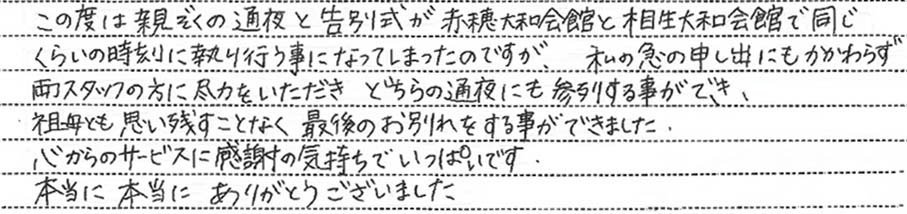 この度は親ぞくの通夜と告別式が赤穂大和会館と相生大和会館で同じ
くらいの時刻に執り行う事になってしまったのですが、私の急の申し出にもかかわらず
両スタッフの方に尽力をいただき どちらの通夜にも参列する事ができ、
祖母とも思い残すことなく最後のお別れをする事ができました.
心からのサービスに感謝の気持ちでいっぱいです.
本当に 本当に ありがとうございました